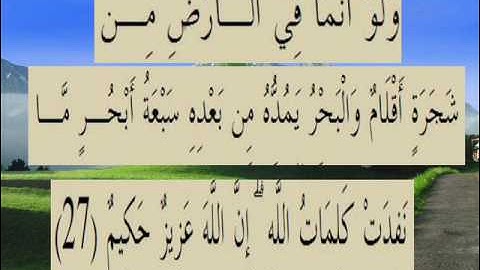 وَلَوْ أَنَّمَا فِي الْأَرْضِ مِن
شَجَرَةٍ أَقْلَامٌ وَالْبَحْرُ يَمُدُّهُ مِن بَعْدِهِ سَبْعَةُ أَبْحُرٍ مَّا
نَفِدَتْ كَلِمَاتُ اللَّهِ ۗ إِنَّ اللَّهَ عَزِيزٌ حَكِيمٌ (27)